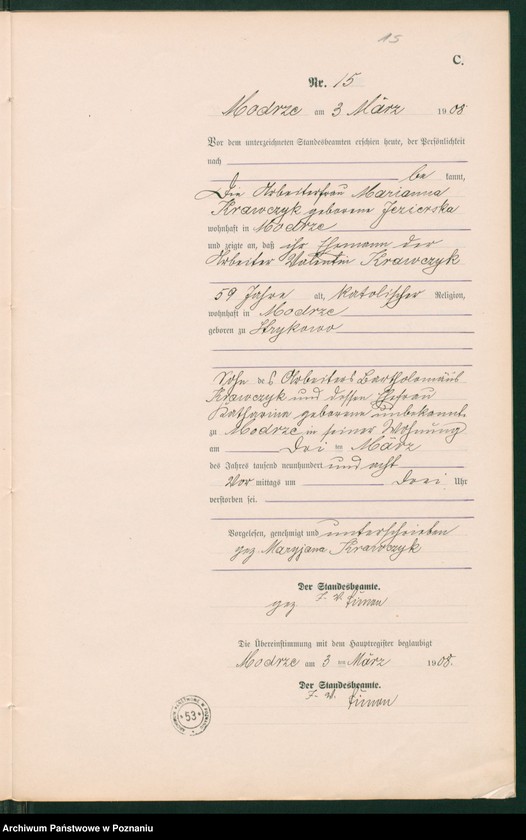 15
C.
Nr. 15
Modrze am 3 März 1908
Vor dem unterzeichneten Standesbeamten erschien heute, der Persönlichkeit
nach
be kannt,
Die Arbeiterfrau Marianna
Krawczyk geborene Jezierska
wohnhaft in Modrze
und zeigte an, daß ihr Ehemann der
Arbeiter Valentin Krawczyk
59 Jahre alt, katolischer Religion,
wohnhaft in Modrze
geboren zu Strykowo
Sohn des Arbeiters Bartholomäus
Krawczyk und dessen Ehefrau
Katharina geborene unbekannt
zu Modrze in seiner Wohnung
am Drei ten März
des Jahres tausend neunhundert und acht
Vor mittags um drei Uhr
verstorben sei.
Vorgelesen, genehmigt und unterschrieben
gez. Maryjana Krawczyk
Der Standesbeamte.
gez. J. V.
Die Übereinstimmung mit dem Hauptregister beglaubigt
Modrze am 3 ten März 1908.
Der Standesbeamte.
J. V.
ARCHIWUM PAŃSTWOWE W POZNANIU
* 53 *
Archiwum Państwowe w Poznaniu